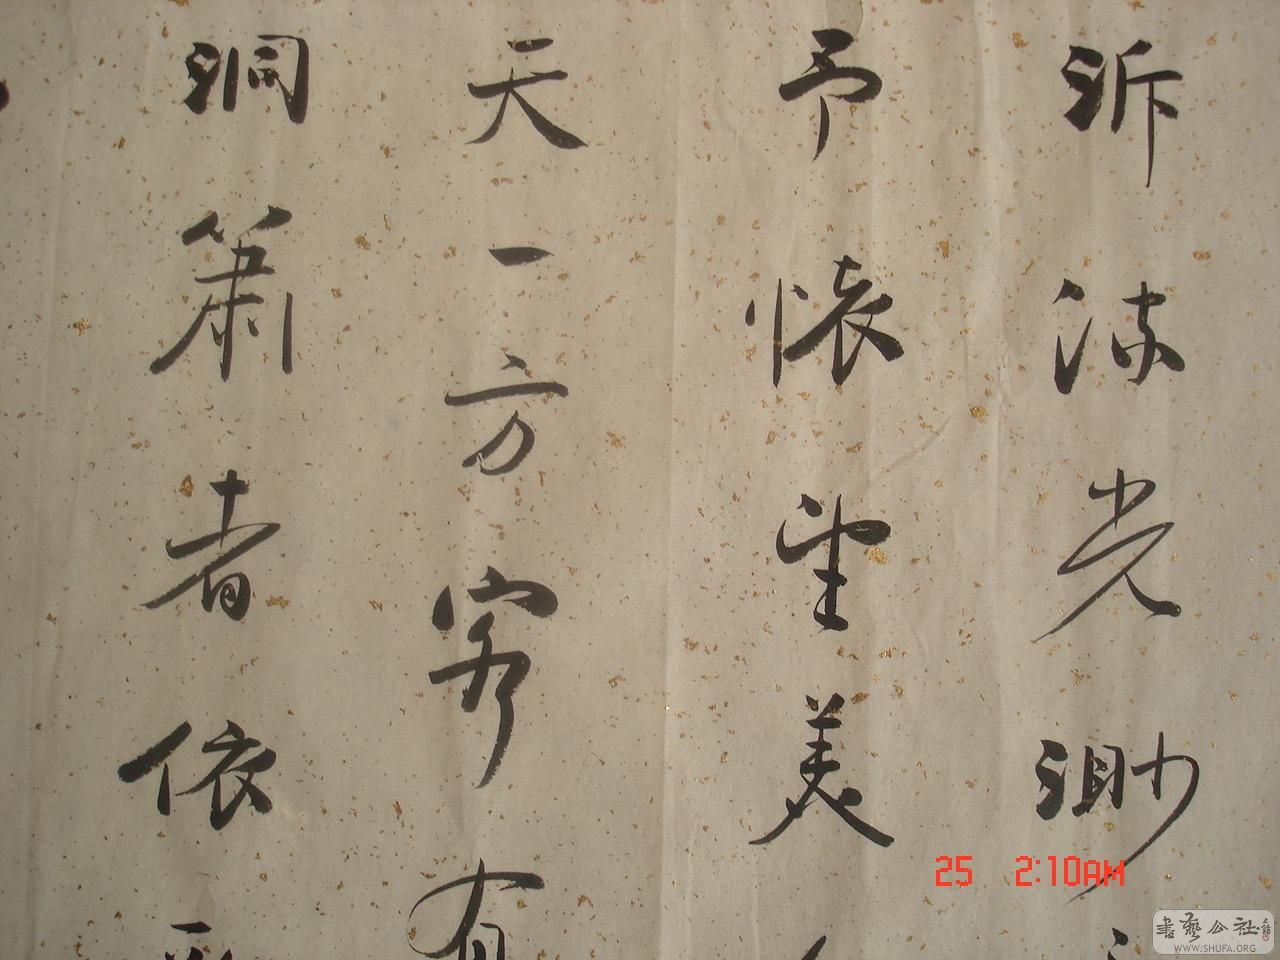 泝流光渺
予懷望美
天一方客有
洞簫者依
25 2:10AM
書藝公社
WWW.SHUFA.ORG